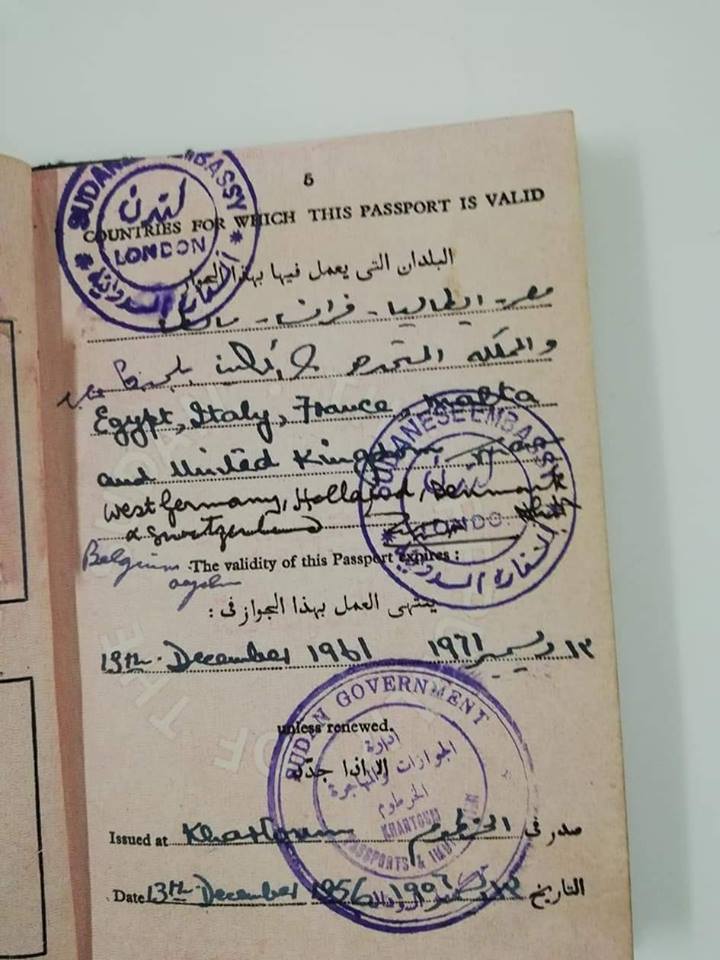 5
COUNTRIES FOR WHICH THIS PASSPORT IS VALID
SUDANESE EMBASSY
لندن
LONDON
السفارة السودانية
البلدان التى يعمل فيها بهذا الجواز
مصر - ايطاليا - فرانسا - مالطا
والمملكة المتحدة
Egypt, Italy, France, Malta
and United Kingdom
West Germany, Holland, Denmark
& Switzerland
SUDANESE EMBASSY
LONDON
السفارة السودانية
Belgium
The validity of this Passport expires :
ينتهى العمل بهذا الجواز فى :
13th December 1961
١٣ ديسمبر ١٩٦١
SUDAN GOVERNMENT
unless renewed.
الا اذا جدد
ادارة
الجوازات والهجرة
الخرطوم
KHARTOUM
PASSPORTS &
Issued at Khartoum
صدر فى الخرطوم
Date 13th December 1956
التاريخ ١٣ ١٩٥٦